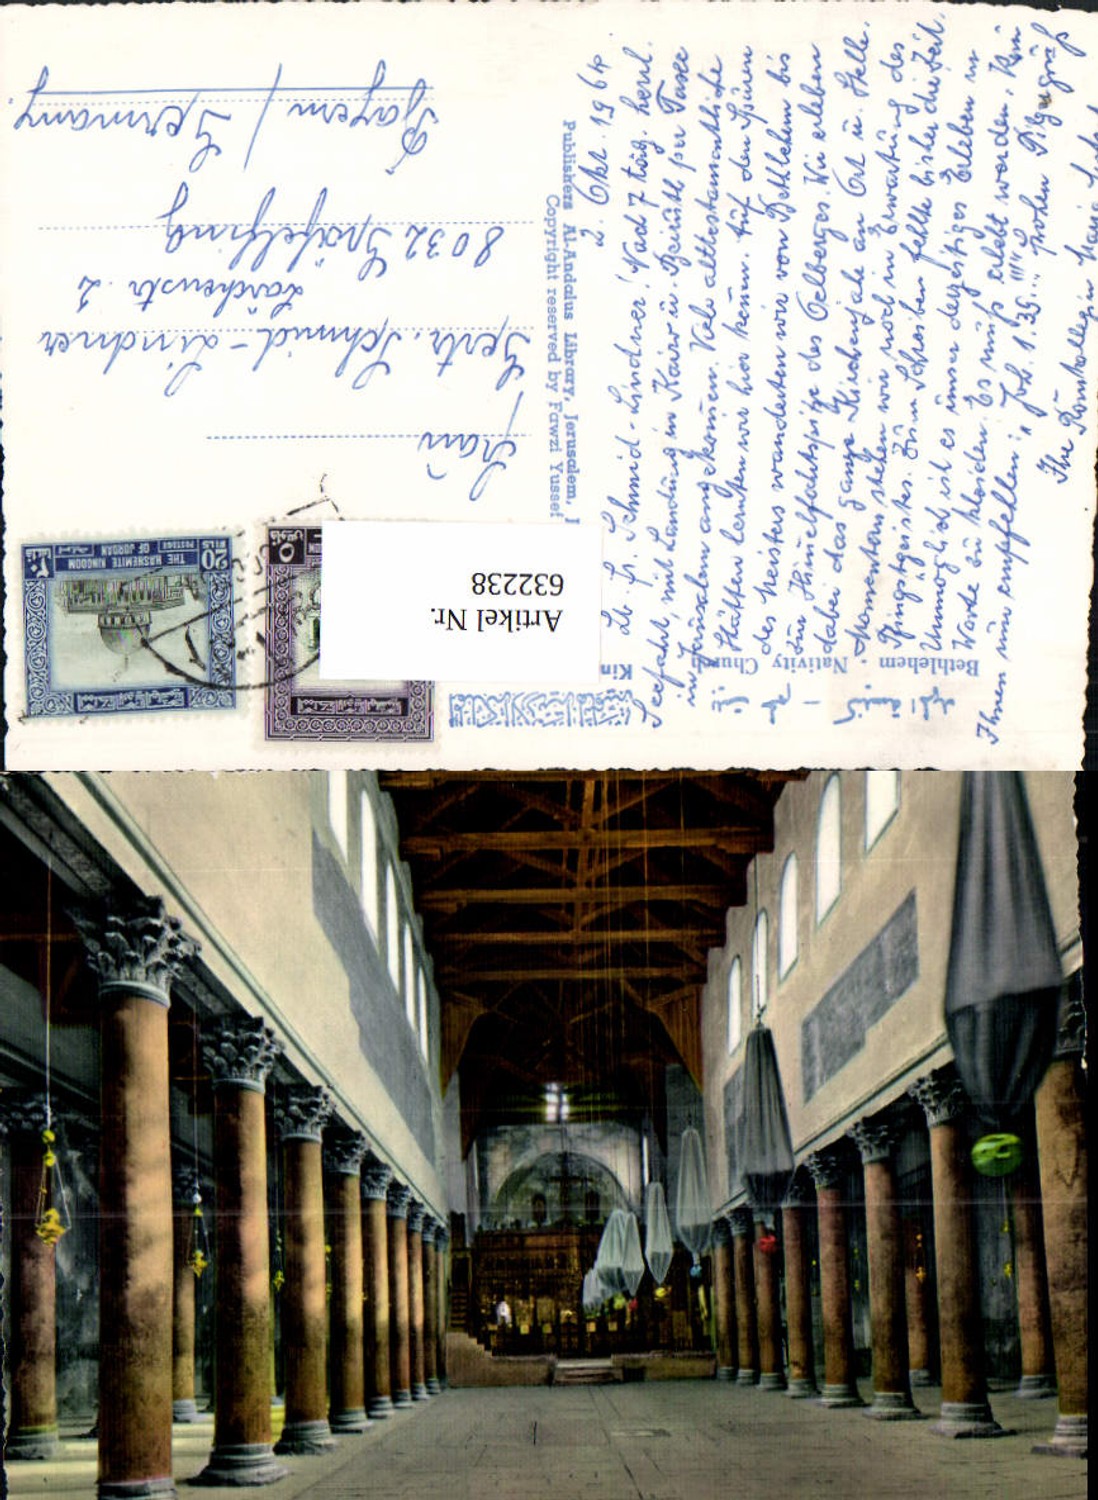 2. Okt. 1964.
Lb. Fr. Schmid-Lindner! Nach 7 täg. herrl.
Seefahrt, mit Landung in Kairo u. Beiruth per Taxe
in Jerusalem angekommen. Viele alttestamentliche
Stätten lernten wir hier kennen. Auf den Spuren
des Meisters wanderten wir von Bethlehem bis
zur Himmelfahrtspitze des Oelberges. Wir erleben
dabei das ganze Kirchenjahr an Ort u. Stelle.
Momentan stehen wir noch in Erwartung des
Pfingstgeistes. Zum Schreiben fehlte bisher die Zeit.
Unmöglich ist es unser derzeitiges Erleben in
Worte zu kleiden. Es muß erlebt werden. Kann
Ihnen nur empfehlen: " Joh. 1.39."!!! frohen Pilgergruß
Ihre Maria
Publishers Al-Andalus Library, Jerusalem, J
Copyright reserved by Fawzi Yussef
Bethlehem - Nativity Church
Kin
Frau
Gertr. Schmid-Lindner
Lärchenstr. 2
8032 Gräfelfing
Bayern / Germany.
20
FILS
THE HASHEMITE KINGDOM
OF JORDAN
POSTAGE
٢٠
٥
فلوس
Artikel Nr.
632238